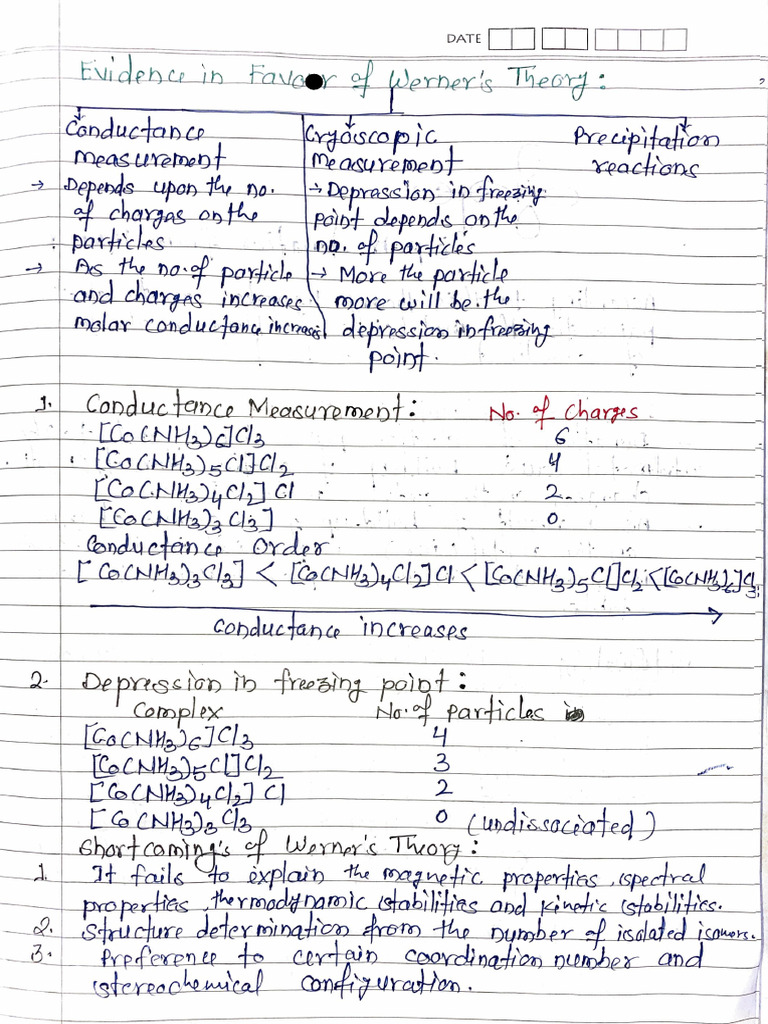 DATE
Evidence in Favour of Werner's Theory:
Conductance
measurement
→ Depends upon the no.
of charges on the
particles.
→ As the no. of particle
and charges increases
molar conductance increases
Cryoscopic
measurement
→ Deprassion in freezing
point depends on the
no. of particles
→ More the particle
more will be the
depression in freezing
point.
Precipitation
reactions
1. Conductance Measurement: No. of Charges
[Co(NH3)6]Cl3 6
[Co(NH3)5Cl]Cl2 4
[Co(NH3)4Cl2]Cl 2
[Co(NH3)3Cl3] 0
Conductance Order
[Co(NH3)3Cl3] < [Co(NH3)4Cl2]Cl < [Co(NH3)5Cl]Cl2 < [Co(NH3)6]Cl3
conductance increases
2. Depression in freezing point:
Complex No. of particles
[Co(NH3)6]Cl3 4
[Co(NH3)5Cl]Cl2 3
[Co(NH3)4Cl2]Cl 2
[Co(NH3)3Cl3 0 (undissociated)
Shortcoming's of Werner's Theory:
1. It fails to explain the magnetic properties, spectral
properties, thermodynamic stabilities and kinetic stabilities.
2. Structure determination from the number of isolated isomers.
3. Preference to certain coordination number and
stereochemical configuration.